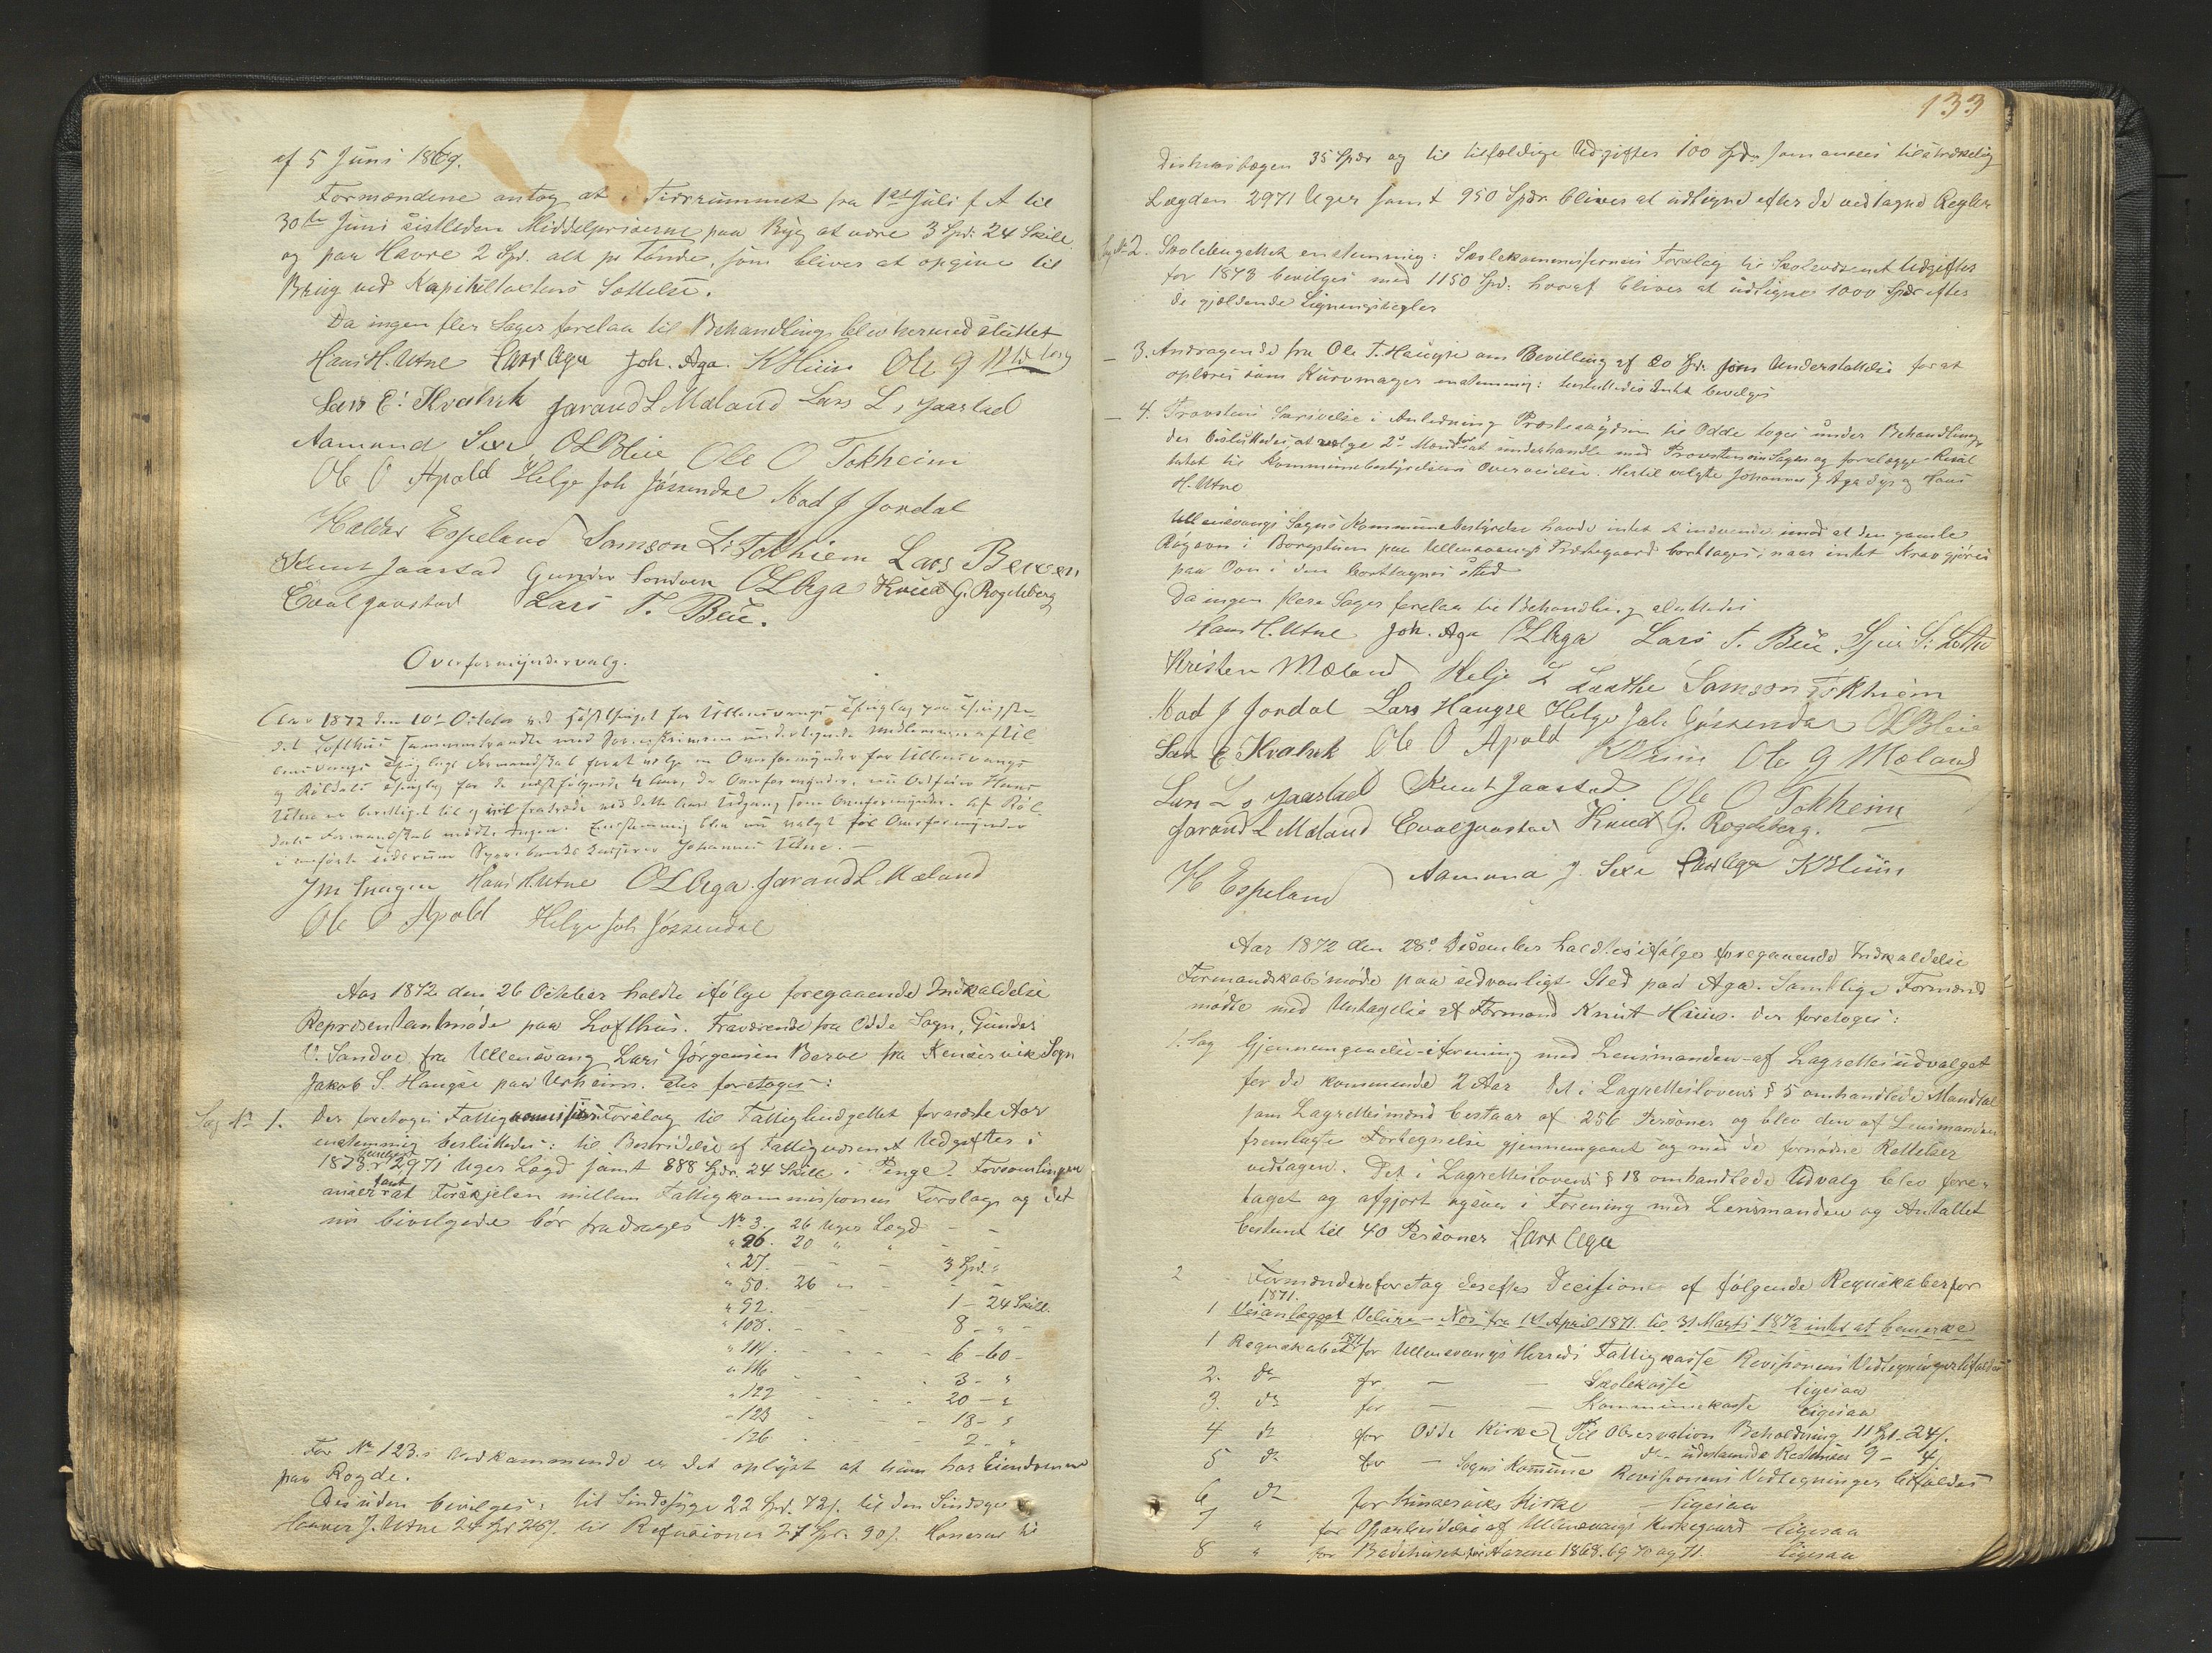 af 5 Juni 1869.
Formændene antog at i Tidsrummet fra 1ste Juli f A til
30te Juni sistleden Middelpriserne paa Byg at være 3 Spd: 24 Skill.
og paa Havre 2 Spd. alt pr Tønde, som bliver at opgive til
Brug ved Kapiteltaxtens Sættelse.
Da ingen fler Sager forelaa til Behandling blev hermed sluttet
Hans H. Utne Lars Aga Joh. Aga. K Huus Ole G
Lars E. Kvalvik Jarand L Mæland Lars L. Jaastad
Aamund Sexe OLBleie Ole O Tokheim
Ole O Apold Helge Joh Jøssendal Mad J Jordal
Haldor Espeland Samson L: Tokhiem Lars Berven
Knut Jaastad Gunder Sandven OLAga Knud G. Rogdeberg
Eval Jaastad Lars T. Beu.
Overformyndervalg.
Aar 1872 den 10de October ved Høstthinget for Ullensvangs Thinglag paa Thingste-
det Lofthus sammentraadte med Sorenskriveren undertegnede Medlemmer af Ul
lensvangs Thinglags Formandskab for at vælge en Overformynder for Ullensvangs
og Røldals Thinglag for de næstfølgende 4 Aar, da Overformynder, Hans
Utne er berettiget til og vil fratræde ved dette Aars Udgang som Overformynder. Af Røl-
dals Formandskab mødte Ingen. Enstemmig blev nu valgt til Overformynder
i anførte Tidsrum Sparebanks Kasserer Johannes Utne. –
Hans H. Utne OLAga. Jarand L Mæland
Ole O Apold Helge Joh Jøssendal
Aar 1872 den 26 October holdte ifølge foregaaende Indkaldelse
Repræsentantmøde paa Lofthus. Fraværende fra Odde Sogn, Gunder
V. Sandve fra Ullensvang Lars Jørgensen Berve fra Kenservik Sogn
Jakob S. Haugse paa Utheim. Der foretoges:
Sag No 1. Der foretoges Fattigkommissionens Forslag til Fattigbudgettet for næste Aar
enstemmig besluttedes: til Bestridelse af Fattigvæsenet Udgifter i
1873 bevilget 2971 Uger Lægd samt 888 Spd. 24 Skill i Penge. Forsamlingen
anser at Forskjelen mellem Fattigkommissionens Forslag og det
nu bevilgede bør fradrages No 3. 26 Uger Lægd – –
" 26. 20 " " – –
" 27. – – – 3 Spd. "
" 50. 26 " – – –
" 92. – 1 – 24 Skill.
" 108. – – 8 – " –
" 114. – – – 6 – 60 –
" 116 – – – 3 – "
" 122 – – – 20 – "
" 123 – – 13 – "
" 126 – 2 – "
For No 123.s Vedkommende er det oplyst at hun har Eiendomme
paa Rogde.
Desuden bevilges: til Sindssyge 22 Spd. 72 s. til den Sindssyge
Haaver J. Utne 24 Spd 26 s. til Refusioner 27 Spd. 90 s. Honorar til
133
Distriktslægen 35 Spdr og til tilfældige Udgifter 100 Spdr. som ansees tilstrækelig
Lægden 2971 Uger samt 950 Spdr. bliver at udligne efter de vedtagne Regler
Sag No 2. Skolebugettet enstemmig: Skolekommissionens Forslag til Skolevæsenet Udgifter
for 1873 bevilges med 1150 Spd: hvoraf bliver at udligne 1000 Spdr efter
de gjældende Ligningsregler
– 3. Andragende fra Ole T. Haugse om Bevilling af 20 Spd. som Understøttelse for at
oplæres som Kurvmager enstemmig: besluttedes Intet bevilges
– 4. Provstens Skrivelse i Anledning Præsteskydsen til Odde toges under Behandling
der besluttedes at vælge 2de Mænd for at underhandle med Provsten om Sagen og forelægge Resul
tatet til Kommunebestyrelsens Overveielse. Hertil valgte Johannes J Aga og Hans
H. Utne
Ullensvangs Sogns Kommunebestyrelse havde intet at indvende imod at den gamle
Røgovn i Borgstuen paa Ullensvangs Præstegaard borttages, naar intet Krav gjøres
paa Ovn i den borttagnes sted
Da ingen flere Sager forelaa til Behandling sluttedes
Hans H. Utne Joh. Aga OLAga Lars T. Beu. Sjur S: Lothe
Kristen Mæland Helje T Laathe Samson Tokhiem
Mad J Jordal Lars Haugse Helge Joh Jøssendal OLBleie
Lars E. Kvalvik Ole O Apold K Huus Ole G Mæland
Lars L. Jaastad Knut Jaastad. Ole O Tokheim
Jarand L Mæland Eval Jaastad Knud G. Rogdeberg.
H Espeland Aamund J. Sexe Lars Aga K Huus
Aar 1872 den 28de Desember holdtes ifølge foregaaende Indkaldelse
Formandskabsmøde paa sedvanligt Sted paa Aga. Samtlige Formænd
mødte med Untagelse af Formand Knut Huus. Der foretoges:
1. Sag Gjennemgaaelse i forening med Lensmanden af Lagretteudvalget
for de kommende 2 Aar det i Lagrettesloven § 5 omhandlede Mandtal
som Lagrettesmænd bestaar af 256 Personer og blev den af Lensmanden
fremlagte Fortegnelse gjennemgaaet og med de fornødne Rettelser
vedtagen. Det i Lagrettesloven § 18 omhandlede Udvalg blev fore-
taget og afgjort ogsaa i Forening med Lensmanden og Antallet
bestemt til 40 Personer Lars Aga
2 – Formændene foretog derefter Desision af følgende Regnskaber for
1871.
1 Veianlægget Velure – Næs fra 1st April 1871. til 31 Marts 1872 intet at bemærke
1 Regnskabet 1871 for Ullensvangs Herreds Fattigkasse Revisionens Vedtegninger bifaldes
2. do for – – Skolekasse ligesaa
3. do for – – Kommunekasse ligesaa
4 do for Odde Kirke Til Observation Beholdning 11 Spd. 24 s.
do udestaaende Restanser 9 – 4
5 do for – Sogns Kommune Revisionens Vedtegninger bifaldes
6 do for Kinservik Kirke – ligesaa
7 " for Oparbeidelse af Ullensvangs Kirkegaard – ligesaa
8 " for Bedehuset for Aarene 1868. 69 70 og 71. ligesaa